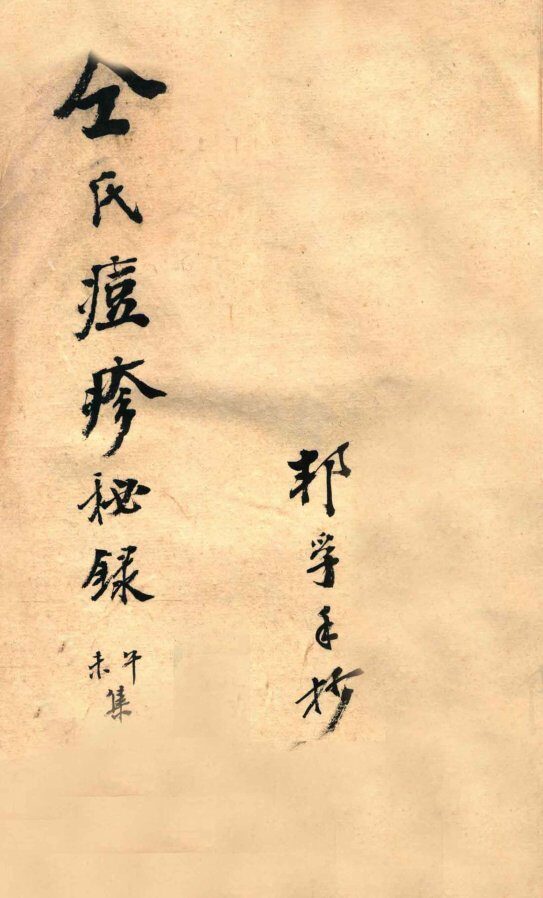 邦孚手抄
仝氏痘疹秘録
午未集